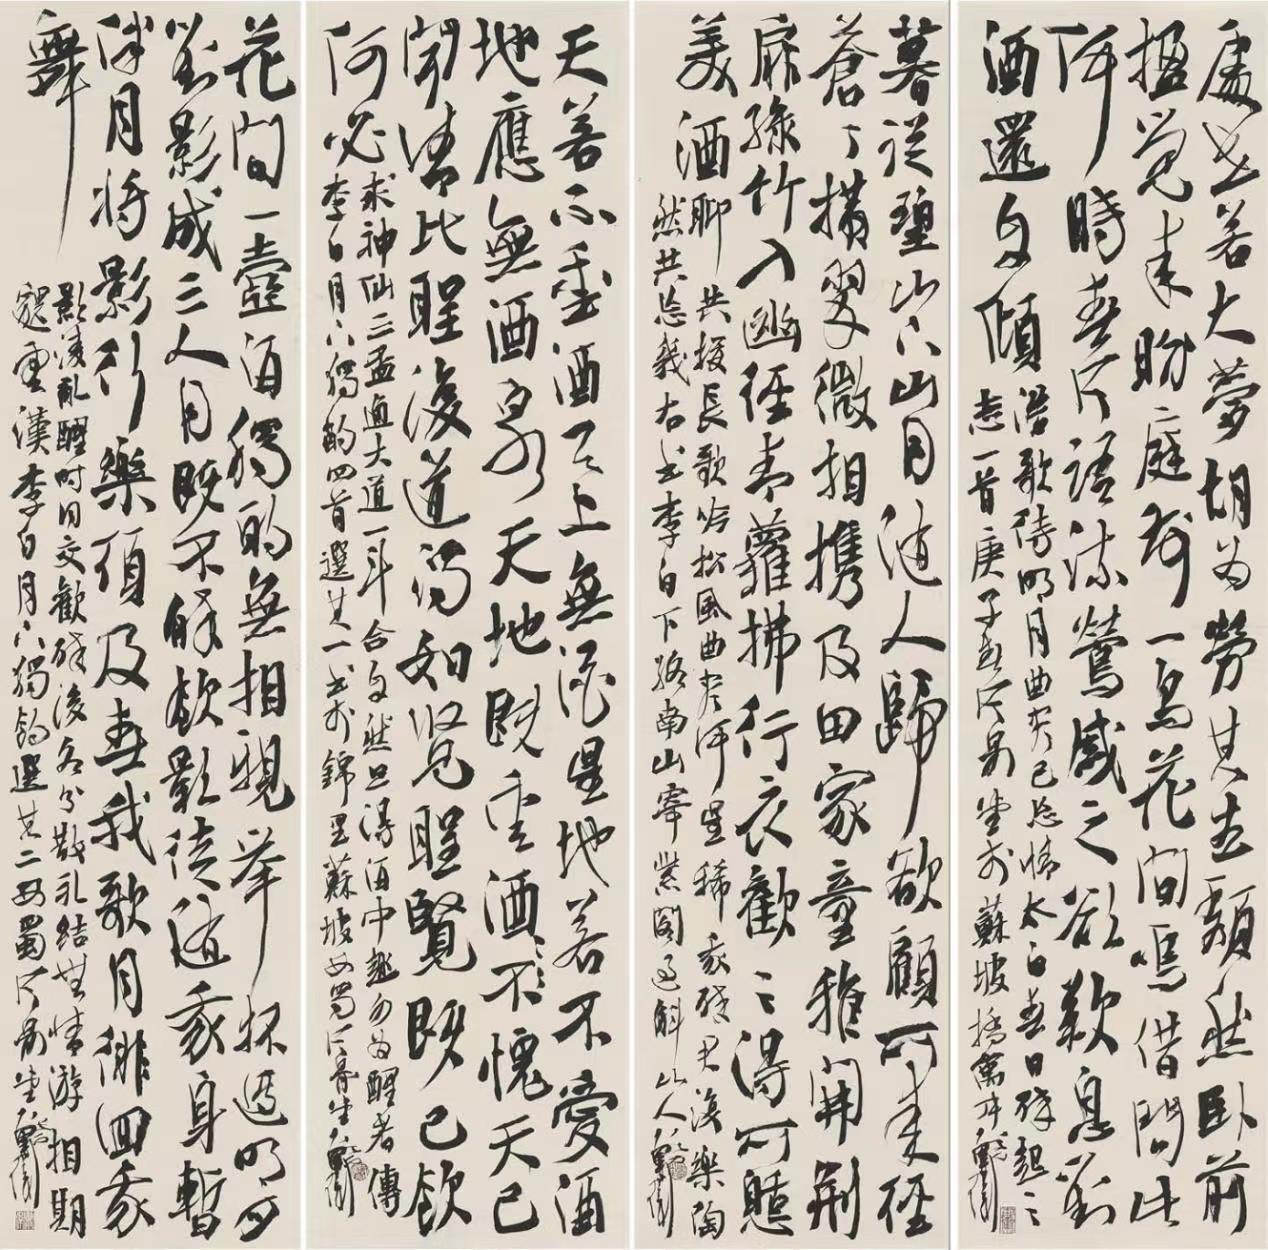 處世若大夢胡為勞其生頹然卧前
楹覺來盼庭前一鳥花間鳴借問此
何時春風語流鶯感之欲歎息對
酒還自傾
浩歌待明月曲盡已忘情太白春日醉起言
志一首庚子春風骨堂於蘇坡橋寓
暮從碧山下山月隨人歸欲顧所來徑
蒼〻橫翠微相攜及田家童稚開荊
扉綠竹入幽徑青蘿拂行衣歡言得所憩
美酒聊
共揮長歌吟松風曲盡河星稀我醉君復樂陶
然共忘機右書李白下終南山 紫閣過斛山人
天若不愛酒天上無酒星地若不愛酒
地應無酒泉天地既愛酒〻不愧天已
聞清比聖復道濁如賢聖賢既已飲
何必
求神仙三盃通大道一斗合自然但得酒中趣勿為醒者傳
李白月下獨酌四首選其一書於錦里蘇坡西蜀風骨堂
花間一壺酒獨酌無相親舉杯邀明月
對影成三人月既不解飲影徒隨我身暫
伴月將影行樂須及春我歌月徘徊我
舞
影淩亂醒時同交歡醉後各分散永結無情游相期
邈雲漢李白月下獨酌選其二西蜀風骨堂